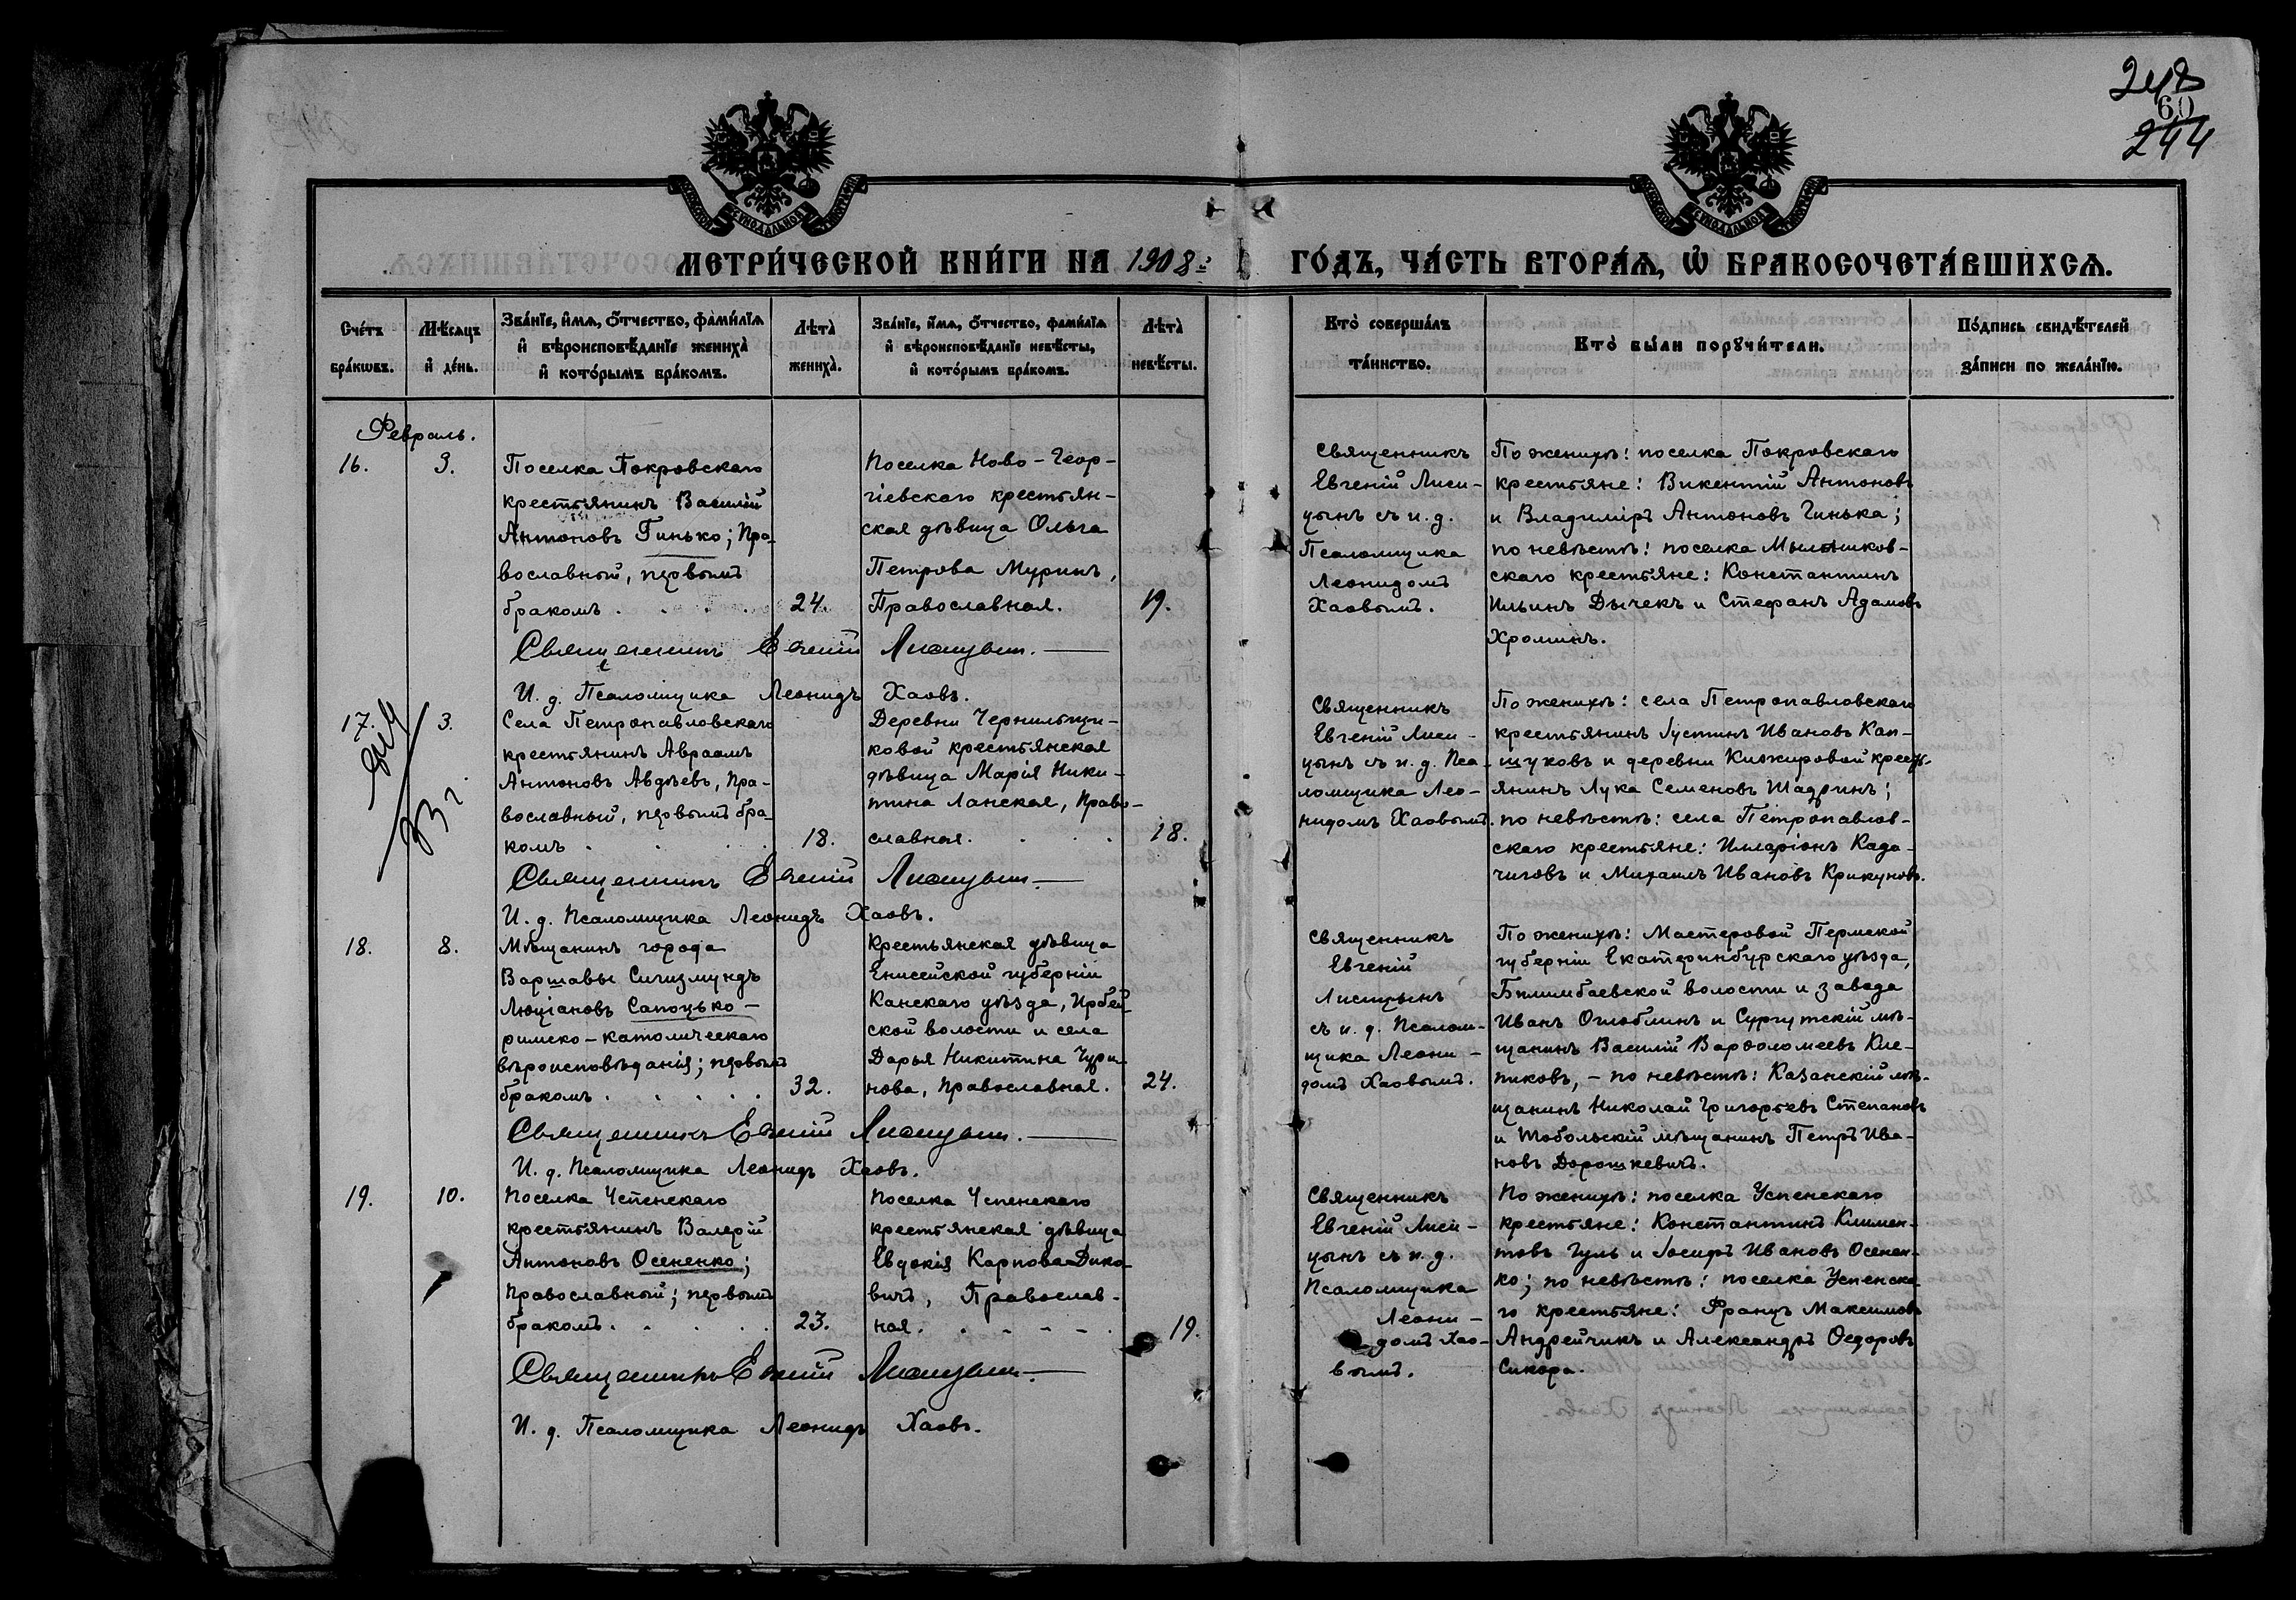 248
60
244
МЕТРИ́ЧЕСКОЙ КНИ́ГИ НА 1908:
ГО́ДЪ, ЧА́СТЬ ВТОРА́Ѧ, Ѽ БРАКОСОЧЕТА́ВШИХСѦ.
Сче́тъ
бра́кѡвъ.
Мѣ́сѧцъ
и҆ де́нь.
Зва́нїе, и҆́мѧ, ѻ҆́тчество, фами́лїѧ
и҆ вѣроисповѣ́данїе жениха̀
и҆ кото́рымъ бра́комъ.
Лѣта̀
жениха̀.
Зва́нїе, и҆́мѧ, ѻ҆́тчество, фами́лїѧ
и҆ вѣроисповѣ́данїе невѣ́сты,
и҆ кото́рымъ бра́комъ.
Лѣта̀
невѣ́сты.
Кто̀ соверша́лъ
та́инство.
Кто̀ бы́ли порꙋчи́тели.
По́дпись свидѣ́телей
за́писи по жела́нїю.
Февраль.
16.
3.
Поселка Покровскаго
крестьянинъ Василій
Антоновъ Гинько; Пра-
вославный, первымъ
бракомъ . . . .
24.
Поселка Ново-Геор-
гіевскаго крестьян-
ская дѣвица Ольга
Петрова Муринъ,
Православная.
19.
Священникъ
Евгеній Лиси-
цынъ съ и. д.
Псаломщика
Леонидомъ
Хаовымъ.
По женихѣ: поселка Покровскаго
крестьяне: Викентій Антоновъ
и Владиміръ Антоновъ Гинька;
по невѣстѣ: поселка Мыльников-
скаго крестьяне: Константинъ
Ильинъ Дычекъ и Стефанъ Адамовъ
Хроминъ.
Священникъ Евгеній Лисицынъ.
И. д. Псаломщика Леонидъ Хаовъ.
17.
3.
Села Петропавловскаго
крестьянинъ Авраамъ
Антоновъ Авдѣевъ, Пра-
вославный, первымъ бра-
комъ . . . .
18.
Деревни Чернильщи-
ковой крестьянская
дѣвица Марія Ники-
тина Ланская, Право-
славная. . . .
18.
Священникъ
Евгеній Лиси-
цынъ съ и. д. Пса-
ломщика Лео-
нидомъ Хаовымъ.
По женихѣ: села Петропавловскаго
крестьянинъ Іустинъ Ивановъ Кап-
щуковъ и деревни Кижировой кресть-
янинъ Лука Семеновъ Шадринъ;
по невѣстѣ: села Петропавлов-
скаго крестьяне: Илларіонъ Када-
чиговъ и Михаилъ Ивановъ Крикуновъ.
Священникъ Евгеній Лисицынъ.
И. д. Псаломщика Леонидъ Хаовъ.
18.
8.
Мѣщанинъ города
Варшавы Сигизмундъ
Люціановъ Сапоцько-
римско-католическаго
вѣроисповѣданія; первымъ
бракомъ . . . . .
32.
Крестьянская дѣвица
Енисейской губерніи
Канскаго уѣзда, Ирбей-
ской волости и села
Дарья Никитина Чури-
нова, Православная.
24.
Священникъ
Евгеній
Лисицынъ
съ и. д. Псалом-
щика Леони-
домъ Хаовымъ.
По женихѣ: Мастеровой Пермской
губерніи Екатеринбурскаго уѣзда,
Билимбаевской волости и завода
Иванъ Оглоблинъ и Сургутскій мѣ-
щанинъ Василій Варѳоломеевъ Кле-
пиковъ, - по невѣстѣ: Казанскій мѣ-
щанинъ Николай Григорьевъ Степановъ
и Тобольскій мѣщанинъ Петръ Ива-
новъ Дорошкевичъ.
Священникъ Евгеній Лисицынъ.
И. д. Псаломщика Леонидъ Хаовъ.
19.
10.
Поселка Успенскаго
крестьянинъ Валерій
Антоновъ Осененко;
Православный; первымъ
бракомъ. . . . .
23.
Поселка Успенскаго
крестьянская дѣвица
Евдокія Карпова Дико-
вичъ, Православ-
ная. . . . . .
19.
Священникъ
Евгеній Лиси-
цынъ съ и. д.
Псаломщика
Леони-
домъ Хао-
вымъ.
По женихѣ: поселка Успенскаго
крестьяне: Константинъ Климен-
товъ Гуль и Іосифъ Ивановъ Осенен-
ко; по невѣстѣ: поселка Успенска-
го крестьяне: Францъ Максимовъ
Андрейчикъ и Александръ Ѳедоровъ
Сикора.
Священникъ Евгеній Лисицынъ.
И. д. Псаломщика Леонидъ Хаовъ.